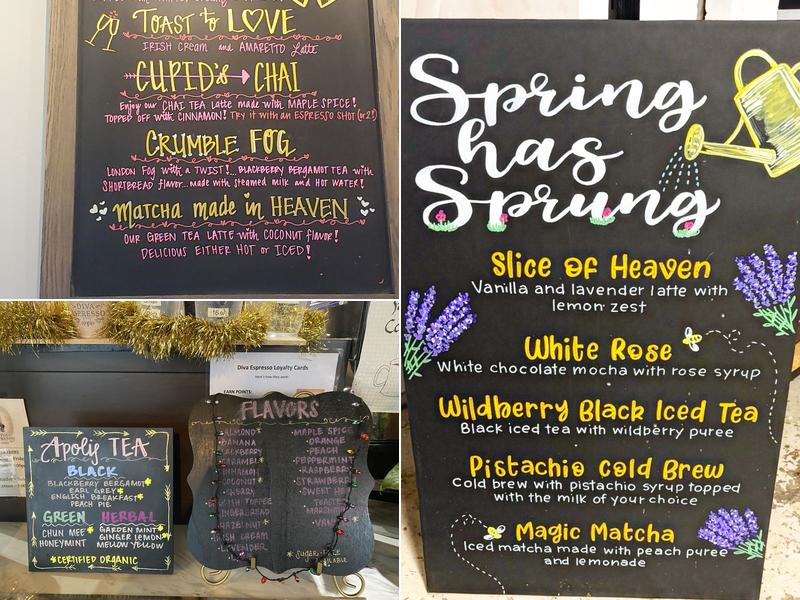 TOAST to LOVE
IRISH CREAM and AMARETTO Latte
CUPID'S CHAI
Enjoy our CHAI TEA Latte made with MAPLE SPICE!
TOPPED OFF with CINNAMON! TRY it with an ESPRESSO SHOT (or 2!)
CRUMBLE FOG
LONDON Fog with a TWIST!... BLACKBERRY BERGAMOT TEA with
SHORTBREAD flavor... made with steamed milk and HOT WATER!
Matcha made in HEAVEN
OUR GREEN TEA LATTE with COCONUT flavor!
DELICIOUS EITHER HOT or ICED!
Spring
has
Sprung
Slice of Heaven
Vanilla and lavender latte with
lemon zest
White Rose
White chocolate mocha with rose syrup
Wildberry Black Iced Tea
Black iced tea with wildberry puree
Pistachio Cold Brew
Cold brew with pistachio syrup topped
with the milk of your choice
Magic Matcha
Iced matcha made with peach puree
and lemonade
Diva Espresso Loyalty Cards
EARN POINTS:
Apolis TEA
BLACK
BLACKBERRY BERGAMOT
EARL GREY
ENGLISH BREAKFAST
PEACH PIE
GREEN
CHUN MEE
HONEYMINT
HERBAL
GARDEN MINT
GINGER LEMON
MELLOW YELLOW
*CERTIFIED ORGANIC
FLAVORS
ALMOND
BANANA
BLACKBERRY
CARAMEL
CINNAMON
COCONUT
CHERRY
TOFFEE
GINGERBREAD
HAZELNUT
IRISH CREAM
LAVENDER
MAPLE SPICE
ORANGE
PEACH
PEPPERMINT
RASPBERRY
STRAWBERRY
SWEET
TOASTED
MARSHMALLOW
VANILLA
*SUGAR-FREE
AVAILABLE